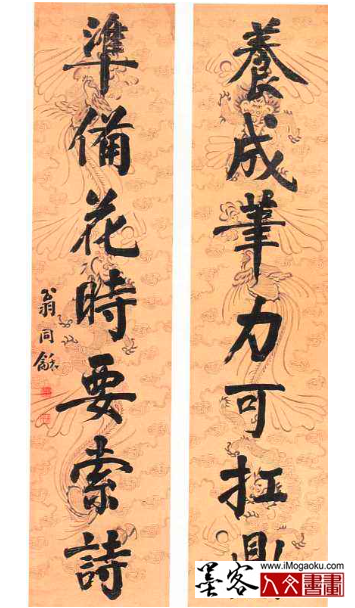 養成筆力可扛鼎
準備花時要索詩
翁同龢
www.iMogaoku.com
墨客人文書畫